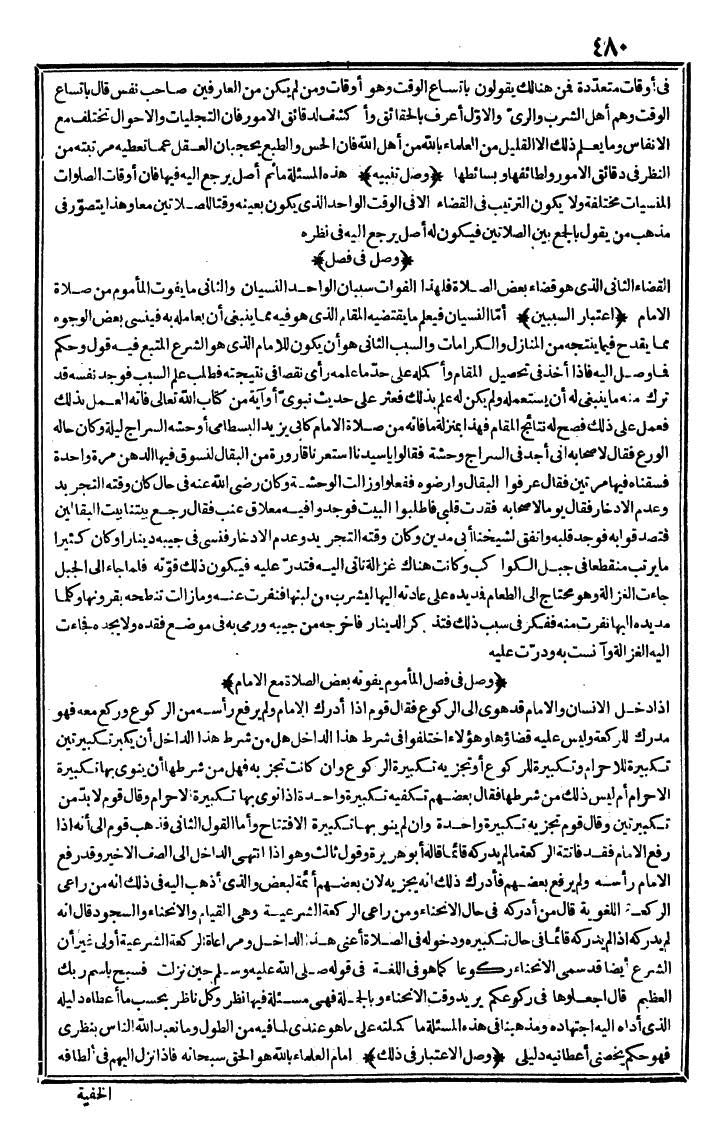 ٤٨٠
فى أوقات متعدّدة فمن هنالك يقولون باتساع الوقت وهو أوقات ومن لم يكن من العارفين صاحب نفس قال باتساع
الوقت وهم أهل الشرب والرىّ والاوّل أعرف بالحقائق وأكشف لدقائق الامور فان التجليات والاحوال تختلف مع
الانفاس وما يعلم ذلك الا القليل من العلماء بالله من أهل الله فان الحس والطبع يحجبان العقل عما تعطيه مرتبته من
النظر فى دقائق الامور ولطائفها وبسائطها ﴿وصل تنبيه﴾ هذه المسئلة ما ثم أصل يرجع اليه فيها فان أوقات الصلوات
المنسيات مختلفة ولا يكون الترتيب فى القضاء الا فى الوقت الواحد الذى يكون بعينه وقتا للصلاتين معا وهذا يتصوّر فى
مذهب من يقول بالجمع بين الصلاتين فيكون له أصل يرجع اليه فى نظره
﴿وصل فى فصل﴾
القضاء الثانى الذى هو قضاء بعض الصلاة فلهذا الفوات سببان الواحد النسيان والثانى ما يفوت المأموم من صلاة
الامام ﴿اعتبار السببين﴾ أمّا النسيان فيعلم ما يقتضيه المقام الذى هو فيه مما ينبغى أن يعامله به فينسى بعض الوجوه
مما يقدح فيما ينتجه من المنازل والكرامات والسبب الثانى هو أن يكون للامام الذى هو الشرع المتبع فيه قول وحكم
فما وصل اليه فاذا أخذ فى تحصيل المقام وأكمله على حدّ ما علمه رأى نقصا فى نتيجته فطلب علم السبب فوجد نفسه قد
ترك منه ما ينبغى له أن يستعمله ولم يكن له علم بذلك فعثر على حديث نبوىّ أو آية من كتاب الله تعالى فاته العمل بذلك
فعمل على ذلك فصح له نتائج المقام فهذا بمنزلة ما فاته من صلاة الامام كابى يزيد البسطامى أوحشه السراج ليلة وكان حاله
الورع فقال لاصحابه انى أجد فى السراج وحشة فقالوا يا سيدنا استعرنا قارورة من البقال لنسوق فيها الدهن مرة واحدة
فسقناه فيها مرتين فقال عرفوا البقال وارضوه ففعلوا وزالت الوحشة وكان رضى الله عنه فى حال كان وقته التجريد
وعدم الادخار فقال يوما لاصحابه فقدت قلبى فاطلبوا البيت فوجدوا فيه معلاق عنب فقال رجع بيتنا بيت البقالين
فتصدقوا به فوجد قلبه واتفق لشيخنا أبى مدين وكان وقته التجريد وعدم الادخار فنسى فى جيبه دينارا وكان كثيرا
ما يرتب منقطعا فى جبل الكواكب وكانت هناك غزالة تاتى اليه فتدرّ عليه فيكون ذلك قوّته فلما جاء الى الجبل
جاءت الغزالة وهو محتاج الى الطعام فمد يده على عادته اليها ليشرب من لبنها فنفرت عنه وما زالت تنطحه بقرونها وكلما
مد يده اليها نفرت منه ففكر فى سبب ذلك فتذكر الدينار فاخرجه من جيبه ورمى به فى موضع فقده ولا يجده فجاءت
اليه الغزالة وآنست به ودرّت عليه
﴿وصل فى فصل المأموم يفوته بعض الصلاة مع الامام﴾
اذا دخل الانسان والامام قد هوى الى الركوع فقال قوم اذا أدرك الامام ولم يرفع رأسه من الركوع وركع معه فهو
مدرك للركعة وليس عليه قضاؤها وهؤلاء اختلفوا فى شرط هذا الداخل هل من شرط هذا الداخل أن يكبر تكبيرتين
تكبيرة للاحرام وتكبيرة للركوع أو تجزيه تكبيرة الركوع وان كانت تجزيه فهل من شرطها أن ينوى بها تكبيرة
الاحرام أم ليس ذلك من شرطها فقال بعضهم تكفيه تكبيرة واحدة اذا نوى بها تكبيرة الاحرام وقال قوم لا بدّ من
تكبيرتين وقال قوم تجزيه تكبيرة واحدة وان لم ينو بها تكبيرة الافتتاح وأما القول الثانى فذهب قوم الى أنه اذا
رفع الامام فقد فاتته الركعة ما لم يدركه قائما قاله أبو هريرة وقول ثالث وهو اذا انتهى الداخل الى الصف الاخير وقد رفع
الامام رأسه ولم يرفع بعضهم فأدرك ذلك انه يجزيه لان بعضهم أئمة لبعض والذى أذهب اليه فى ذلك انه من راعى
الركعة اللغوية قال من أدركه فى حال الانحناء ومن راعى الركعة الشرعية وهى القيام والانحناء والسجود قال انه
لم يدركه اذا لم يدركه قائما فى حال تكبيره ودخوله فى الصلاة أعنى هذا الداخل ومراعاة الركعة الشرعية أولى غير أن
الشرع أيضا قد سمى الانحناء ركوعا كما هو فى اللغة فى قوله صلى الله عليه وسلم حين نزلت فسبح باسم ربك
العظيم قال اجعلوها فى ركوعكم يريد وقت الانحناء وبالجملة فهى مسئلة فيها نظر وكل ناظر بحسب ما أعطاه دليله
الذى أداه اليه اجتهاده ومذهبنا فى هذه المسئلة ما كملته على ما هو عندى لما فيه من الطول وما تعبد الله الناس بنظرى
فهو حكم يخصنى أعطانيه دليلى ﴿وصل الاعتبار فى ذلك﴾ امام العلماء بالله هو الحق سبحانه فاذا نزل اليهم فى ألطافه
الخفية